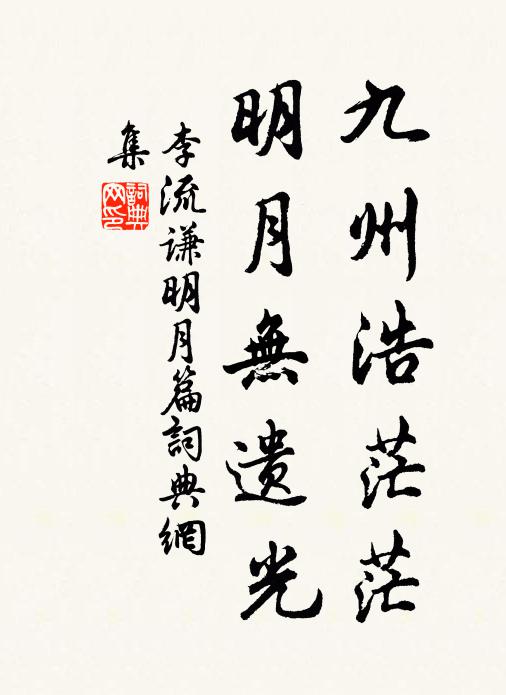 九州浩茫茫
明月無遺光
李流谦明月篇詞典網
集
詞典網印